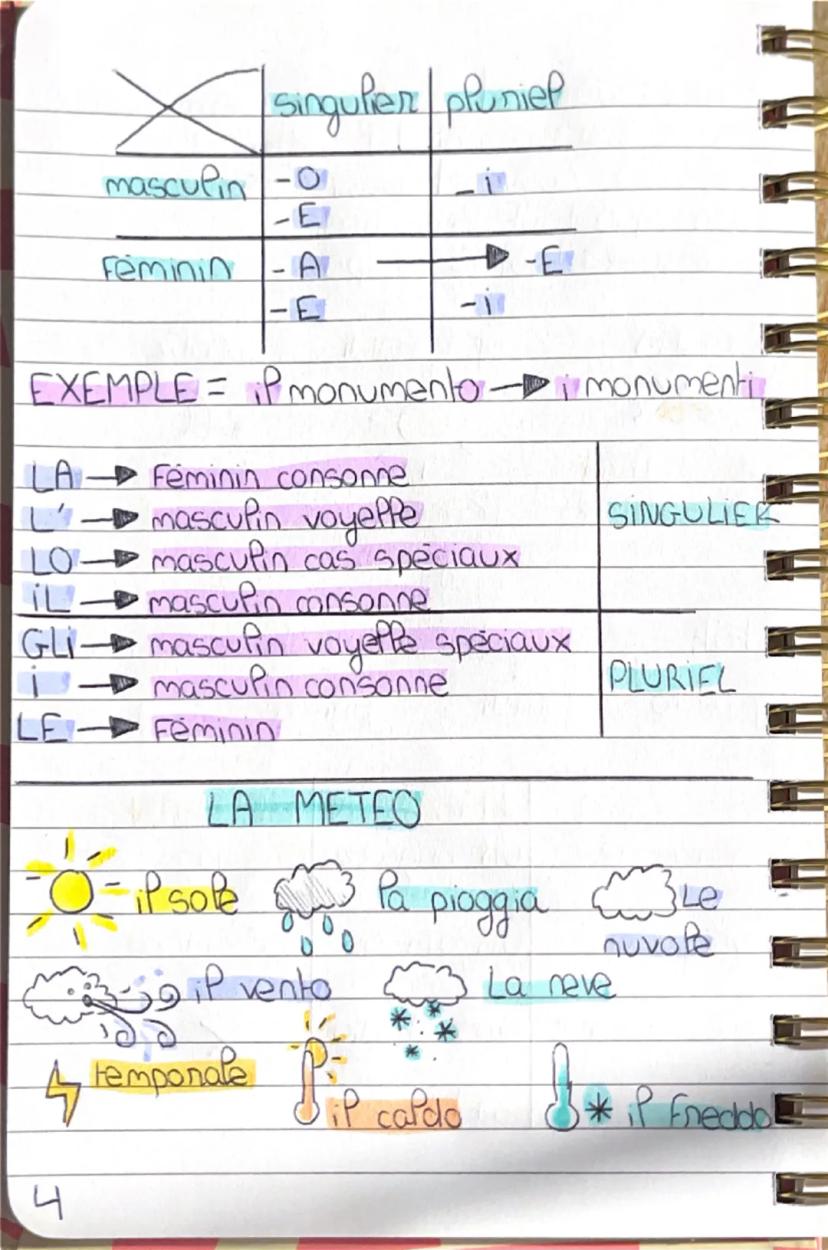 singulier pluriel
masculin -O -i
-E
Féminin -A → -E
-E -i
EXEMPLE = il monumento → i monumenti
LA → Féminin consonne
L' → masculin voyelle SINGULIER
LO → masculin cas spéciaux
iL → masculin consonne
GLi → masculin voyelle spéciaux
i → masculin consonne PLURIEL
LE → Féminin
LA METEO
= il sole la pioggia Le
nuvole
il vento La neve
temporale
il caldo il Freddo
4